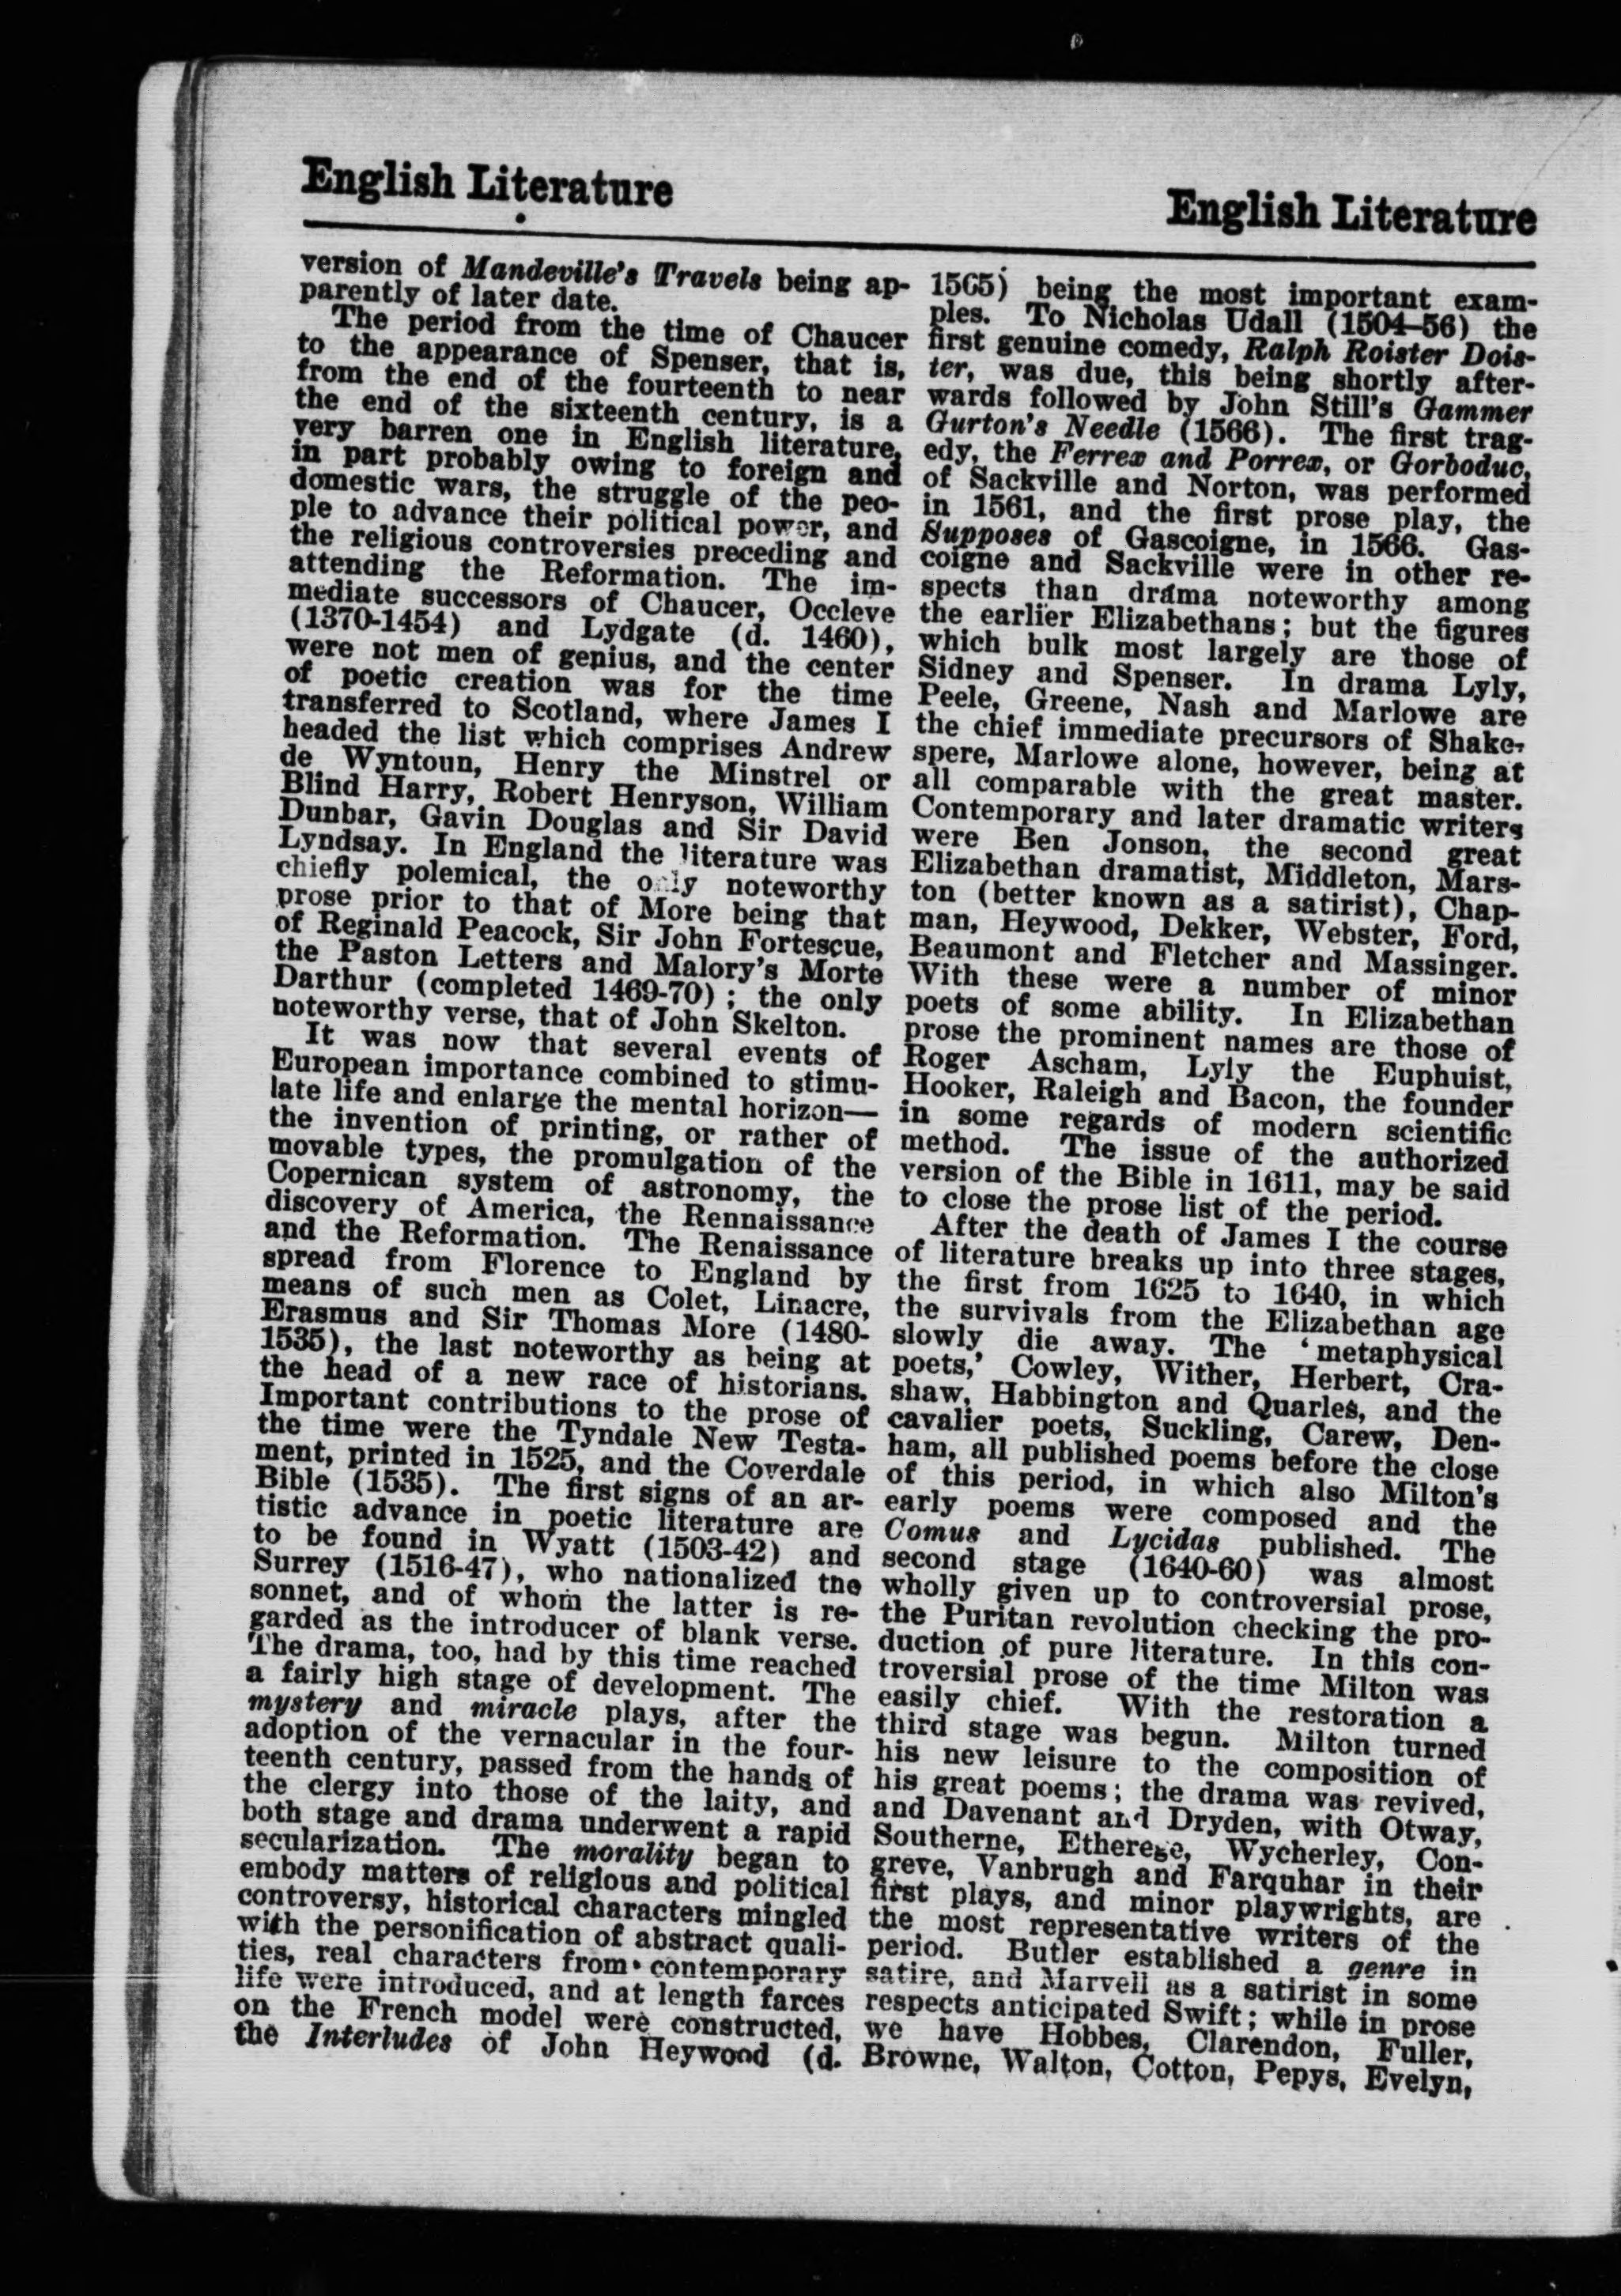 English Literature
English Literature
version of Mandeville's Travels being ap-
parently of later date.
The period from the time of Chaucer
to the appearance of Spenser, that is,
from the end of the fourteenth to near
the end of the sixteenth century, is a
very barren one in English literature,
in part probably owing to foreign and
domestic wars, the struggle of the peo-
ple to advance their political power, and
the religious controversies preceding and
attending the Reformation. The im-
mediate successors of Chaucer, Occleve
(1370-1454) and Lydgate (d. 1460),
were not men of genius, and the center
of poetic creation was for the time
transferred to Scotland, where James I
headed the list which comprises Andrew
de Wyntoun, Henry the Minstrel or
Blind Harry, Robert Henryson, William
Dunbar, Gavin Douglas and Sir David
Lyndsay. In England the literature was
chiefly polemical, the only noteworthy
prose prior to that of More being that
of Reginald Peacock, Sir John Fortescue,
the Paston Letters and Malory's Morte
Darthur (completed 1469-70); the only
noteworthy verse, that of John Skelton.
It was now that several events of
European importance combined to stimu-
late life and enlarge the mental horizon—
the invention of printing, or rather of
movable types, the promulgation of the
Copernican system of astronomy, the
discovery of America, the Rennaissance
and the Reformation. The Renaissance
spread from Florence to England by
means of such men as Colet, Linacre,
Erasmus and Sir Thomas More (1480-
1535), the last noteworthy as being at
the head of a new race of historians.
Important contributions to the prose of
the time were the Tyndale New Testa-
ment, printed in 1525, and the Coverdale
Bible (1535). The first signs of an ar-
tistic advance in poetic literature are
to be found in Wyatt (1503-42) and
Surrey (1516-47), who nationalized the
sonnet, and of whom the latter is re-
garded as the introducer of blank verse.
The drama, too, had by this time reached
a fairly high stage of development. The
mystery and miracle plays, after the
adoption of the vernacular in the four-
teenth century, passed from the hands of
the clergy into those of the laity, and
both stage and drama underwent a rapid
secularization. The morality began to
embody matters of religious and political
controversy, historical characters mingled
with the personification of abstract quali-
ties, real characters from contemporary
life were introduced, and at length farces
on the French model were constructed,
the Interludes of John Heywood (d.
1565) being the most important exam-
ples. To Nicholas Udall (1504-56) the
first genuine comedy, Ralph Roister Dois-
ter, was due, this being shortly after-
wards followed by John Still's Gammer
Gurton's Needle (1566). The first trag-
edy, the Ferrex and Porrex, or Gorboduc,
of Sackville and Norton, was performed
in 1561, and the first prose play, the
Supposes of Gascoigne, in 1566. Gas-
coigne and Sackville were in other re-
spects than drama noteworthy among
the earlier Elizabethans; but the figures
which bulk most largely are those of
Sidney and Spenser. In drama Lyly,
Peele, Greene, Nash and Marlowe are
the chief immediate precursors of Shake-
spere, Marlowe alone, however, being at
all comparable with the great master.
Contemporary and later dramatic writers
were Ben Jonson, the second great
Elizabethan dramatist, Middleton, Mars-
ton (better known as a satirist), Chap-
man, Heywood, Dekker, Webster, Ford,
Beaumont and Fletcher and Massinger.
With these were a number of minor
poets of some ability. In Elizabethan
prose the prominent names are those of
Roger Ascham, Lyly the Euphuist,
Hooker, Raleigh and Bacon, the founder
in some regards of modern scientific
method. The issue of the authorized
version of the Bible in 1611, may be said
to close the prose list of the period.
After the death of James I the course
of literature breaks up into three stages,
the first from 1625 to 1640, in which
the survivals from the Elizabethan age
slowly die away. The 'metaphysical
poets,' Cowley, Wither, Herbert, Cra-
shaw, Habbington and Quarles, and the
cavalier poets, Suckling, Carew, Den-
ham, all published poems before the close
of this period, in which also Milton's
early poems were composed and the
Comus and Lycidas published. The
second stage (1640-60) was almost
wholly given up to controversial prose,
the Puritan revolution checking the pro-
duction of pure literature. In this con-
troversial prose of the time Milton was
easily chief. With the restoration a
third stage was begun. Milton turned
his new leisure to the composition of
his great poems; the drama was revived,
and Davenant and Dryden, with Otway,
Southerne, Etherege, Wycherley, Con-
greve, Vanbrugh and Farquhar in their
first plays, and minor playwrights, are
the most representative writers of the
period. Butler established a genre in
satire, and Marvell as a satirist in some
respects anticipated Swift; while in prose
we have Hobbes, Clarendon, Fuller,
Browne, Walton, Cotton, Pepys, Evelyn,